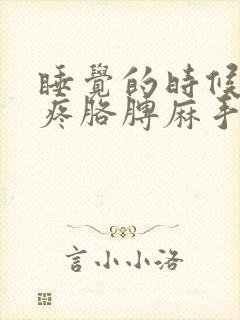 睡覺的時候
疼胳脾麻手
言小小洛